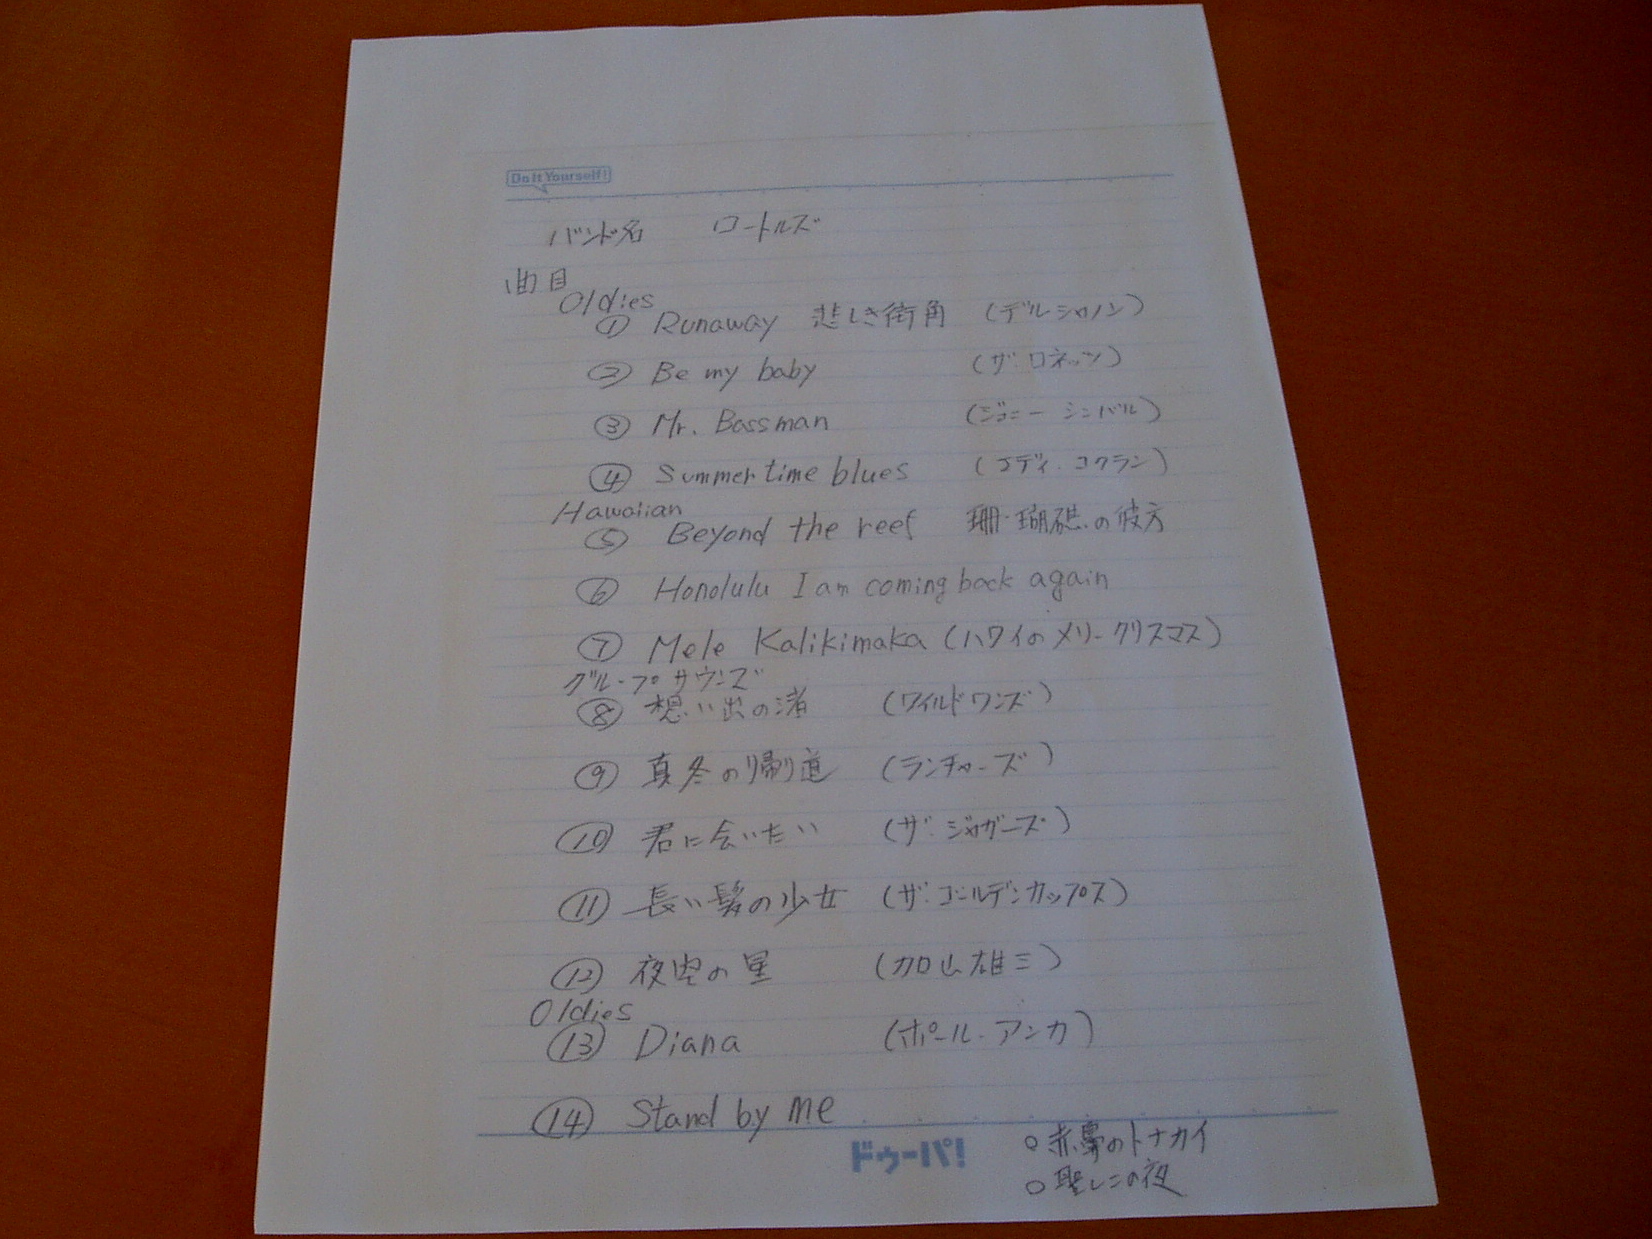 Do It Yourself!
バンド名 ロートルズ
曲目
Oldies
① Runaway 悲しき街角 (デルシャノン)
② Be my baby (ザ・ロネッツ)
③ Mr. Bassman (ジョニー シンバル)
④ Summer time blues (エディ・コクラン)
Hawaiian
⑤ Beyond the reef 珊瑚礁の彼方
⑥ Honolulu I am coming back again
⑦ Mele Kalikimaka (ハワイのメリークリスマス)
グループサウンズ
⑧ 想い出の渚 (ワイルドワンズ)
⑨ 真冬の帰り道 (ランチャーズ)
⑩ 君に会いたい (ザ・ジャガーズ)
⑪ 長い髪の少女 (ザ・ゴールデンカップス)
⑫ 夜空の星 (加山雄三)
Oldies
⑬ Diana (ポール・アンカ)
⑭ Stand by me
ドゥーパ!
○ 赤鼻のトナカイ
○ 聖しこの夜